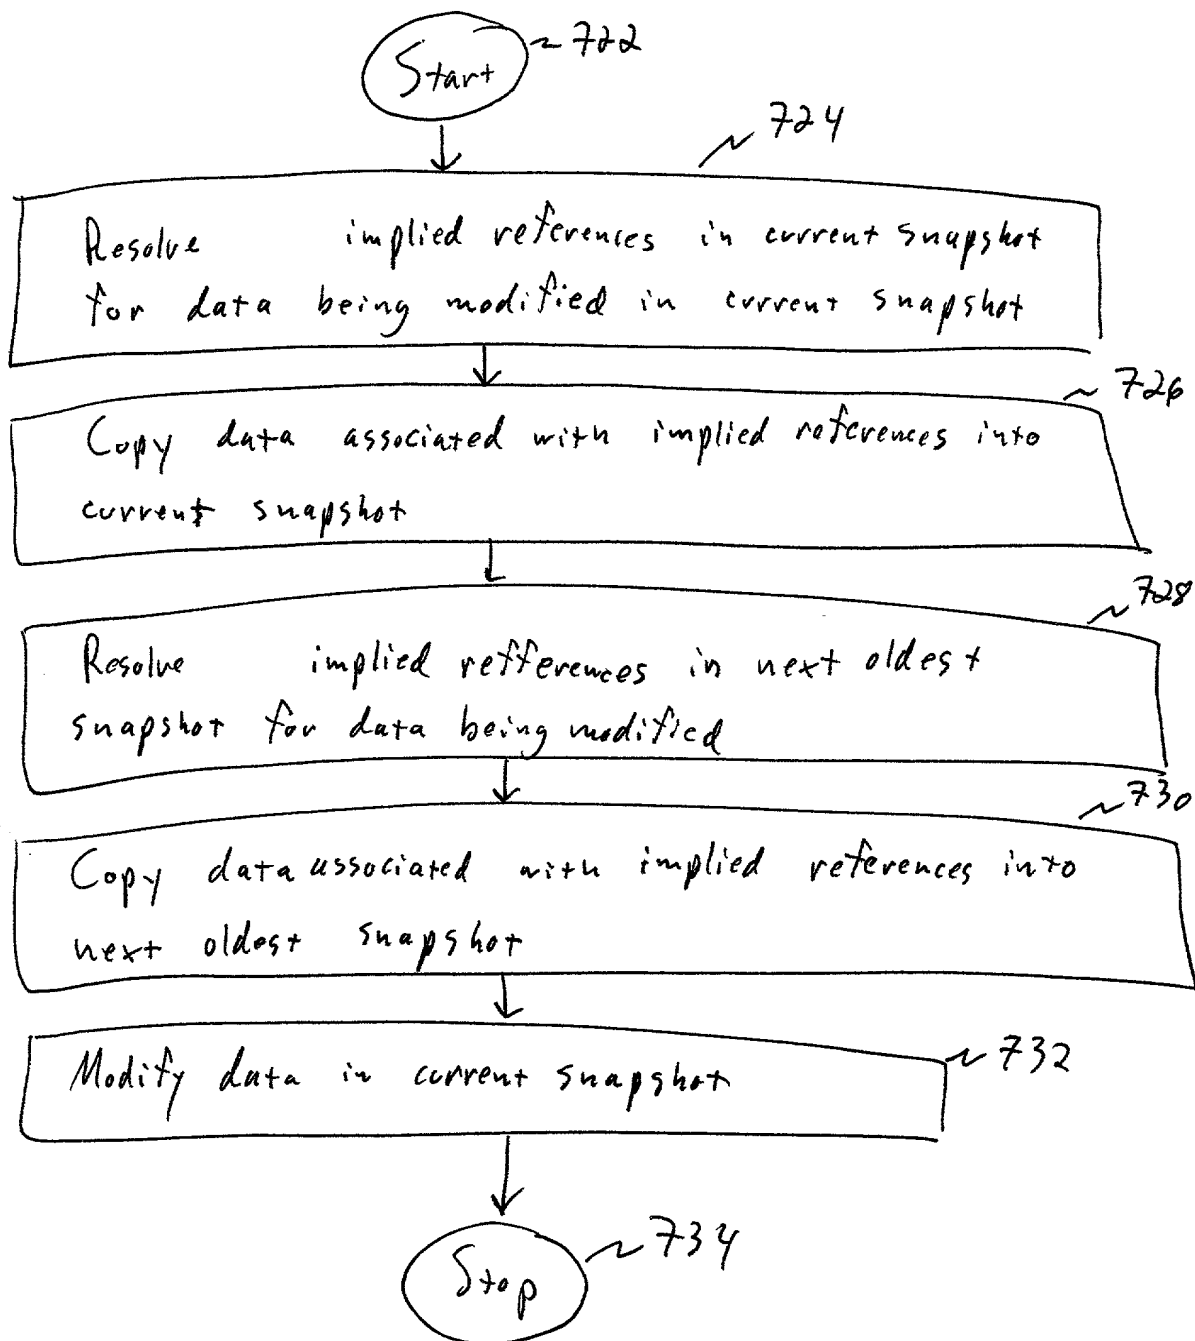 Start
722
724
Resolve implied references in current snapshot
for data being modified in current snapshot
726
Copy data associated with implied references into
current snapshot
728
Resolve implied refferences in next oldest
snapshot for data being modified
730
Copy data associated with implied references into
next oldest snapshot
732
Modify data in current snapshot
734
Stop